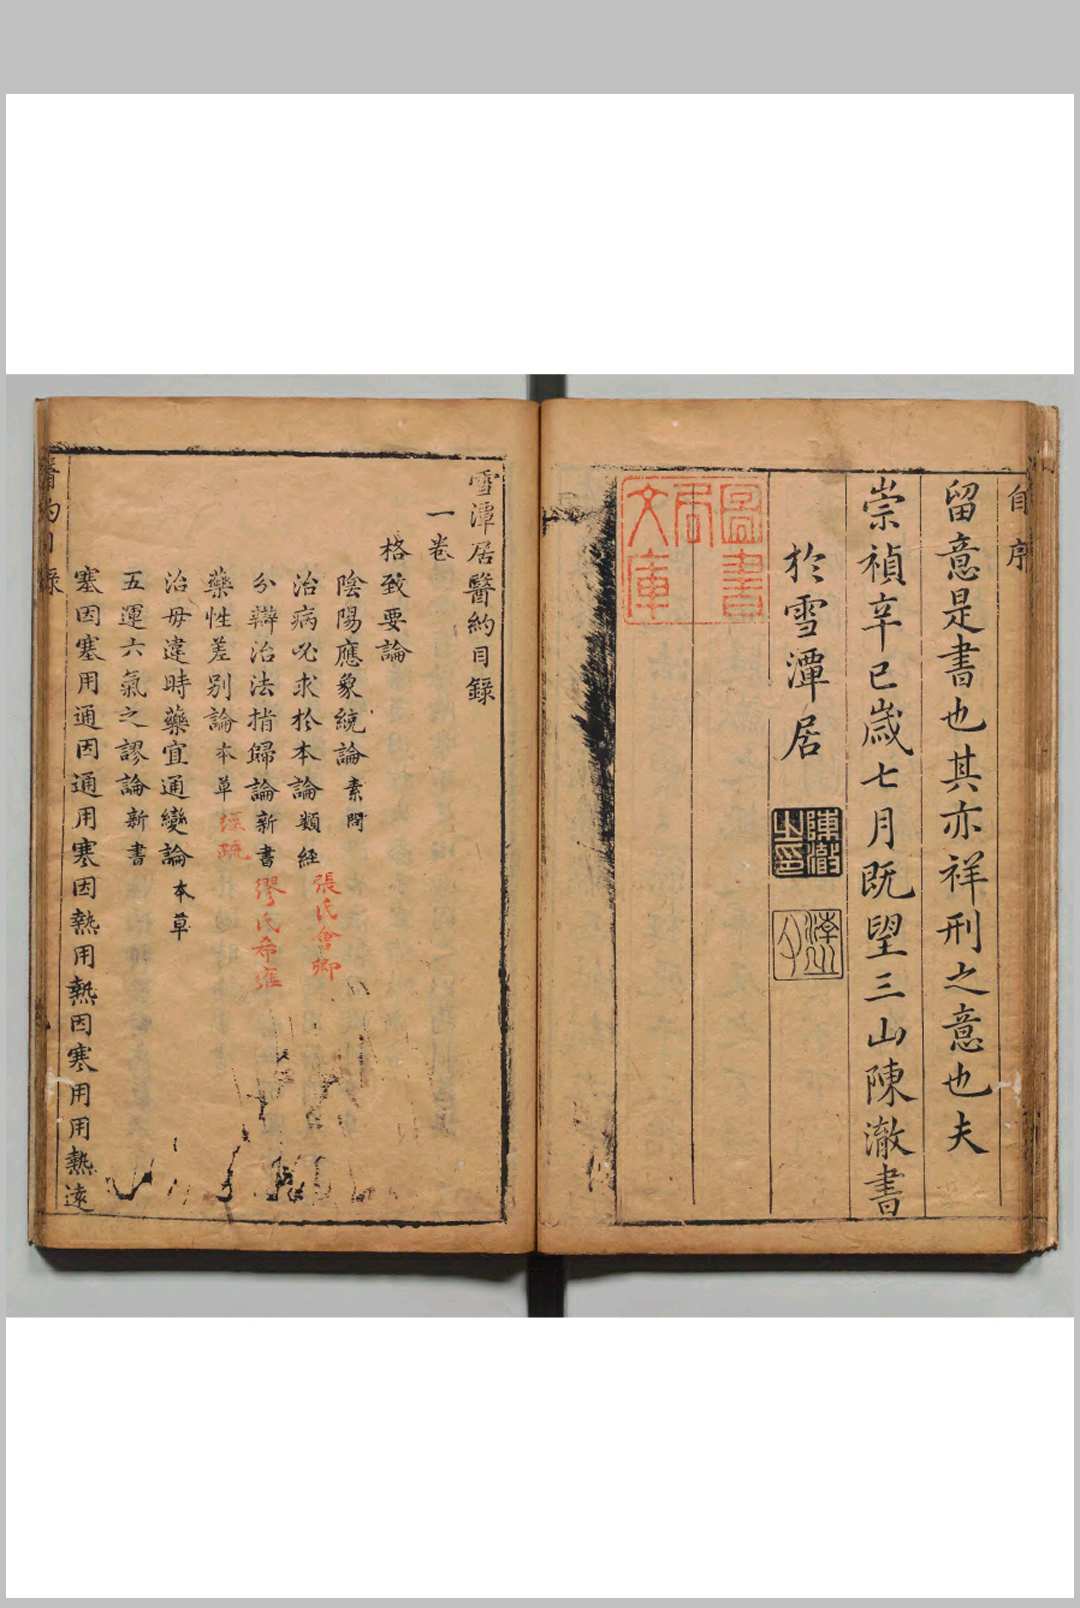 自序
留意是書也其亦祥刑之意也夫
崇禎辛巳歲七月既望三山陳澈書
於雪潭居
陳澈之印
圖書
局
文庫
雪潭居醫約目錄
一卷
格致要論
陰陽應象統論素問
治病必求於本論類經
張氏會卿
分辯治法指歸論新書
繆氏希雍
藥性差別論本草
經疏
治毋違時藥宜通變論本草
五運六氣之謬論新書
塞因塞用通因通用寒因熱用熱因寒用用熱遠
醫約目錄